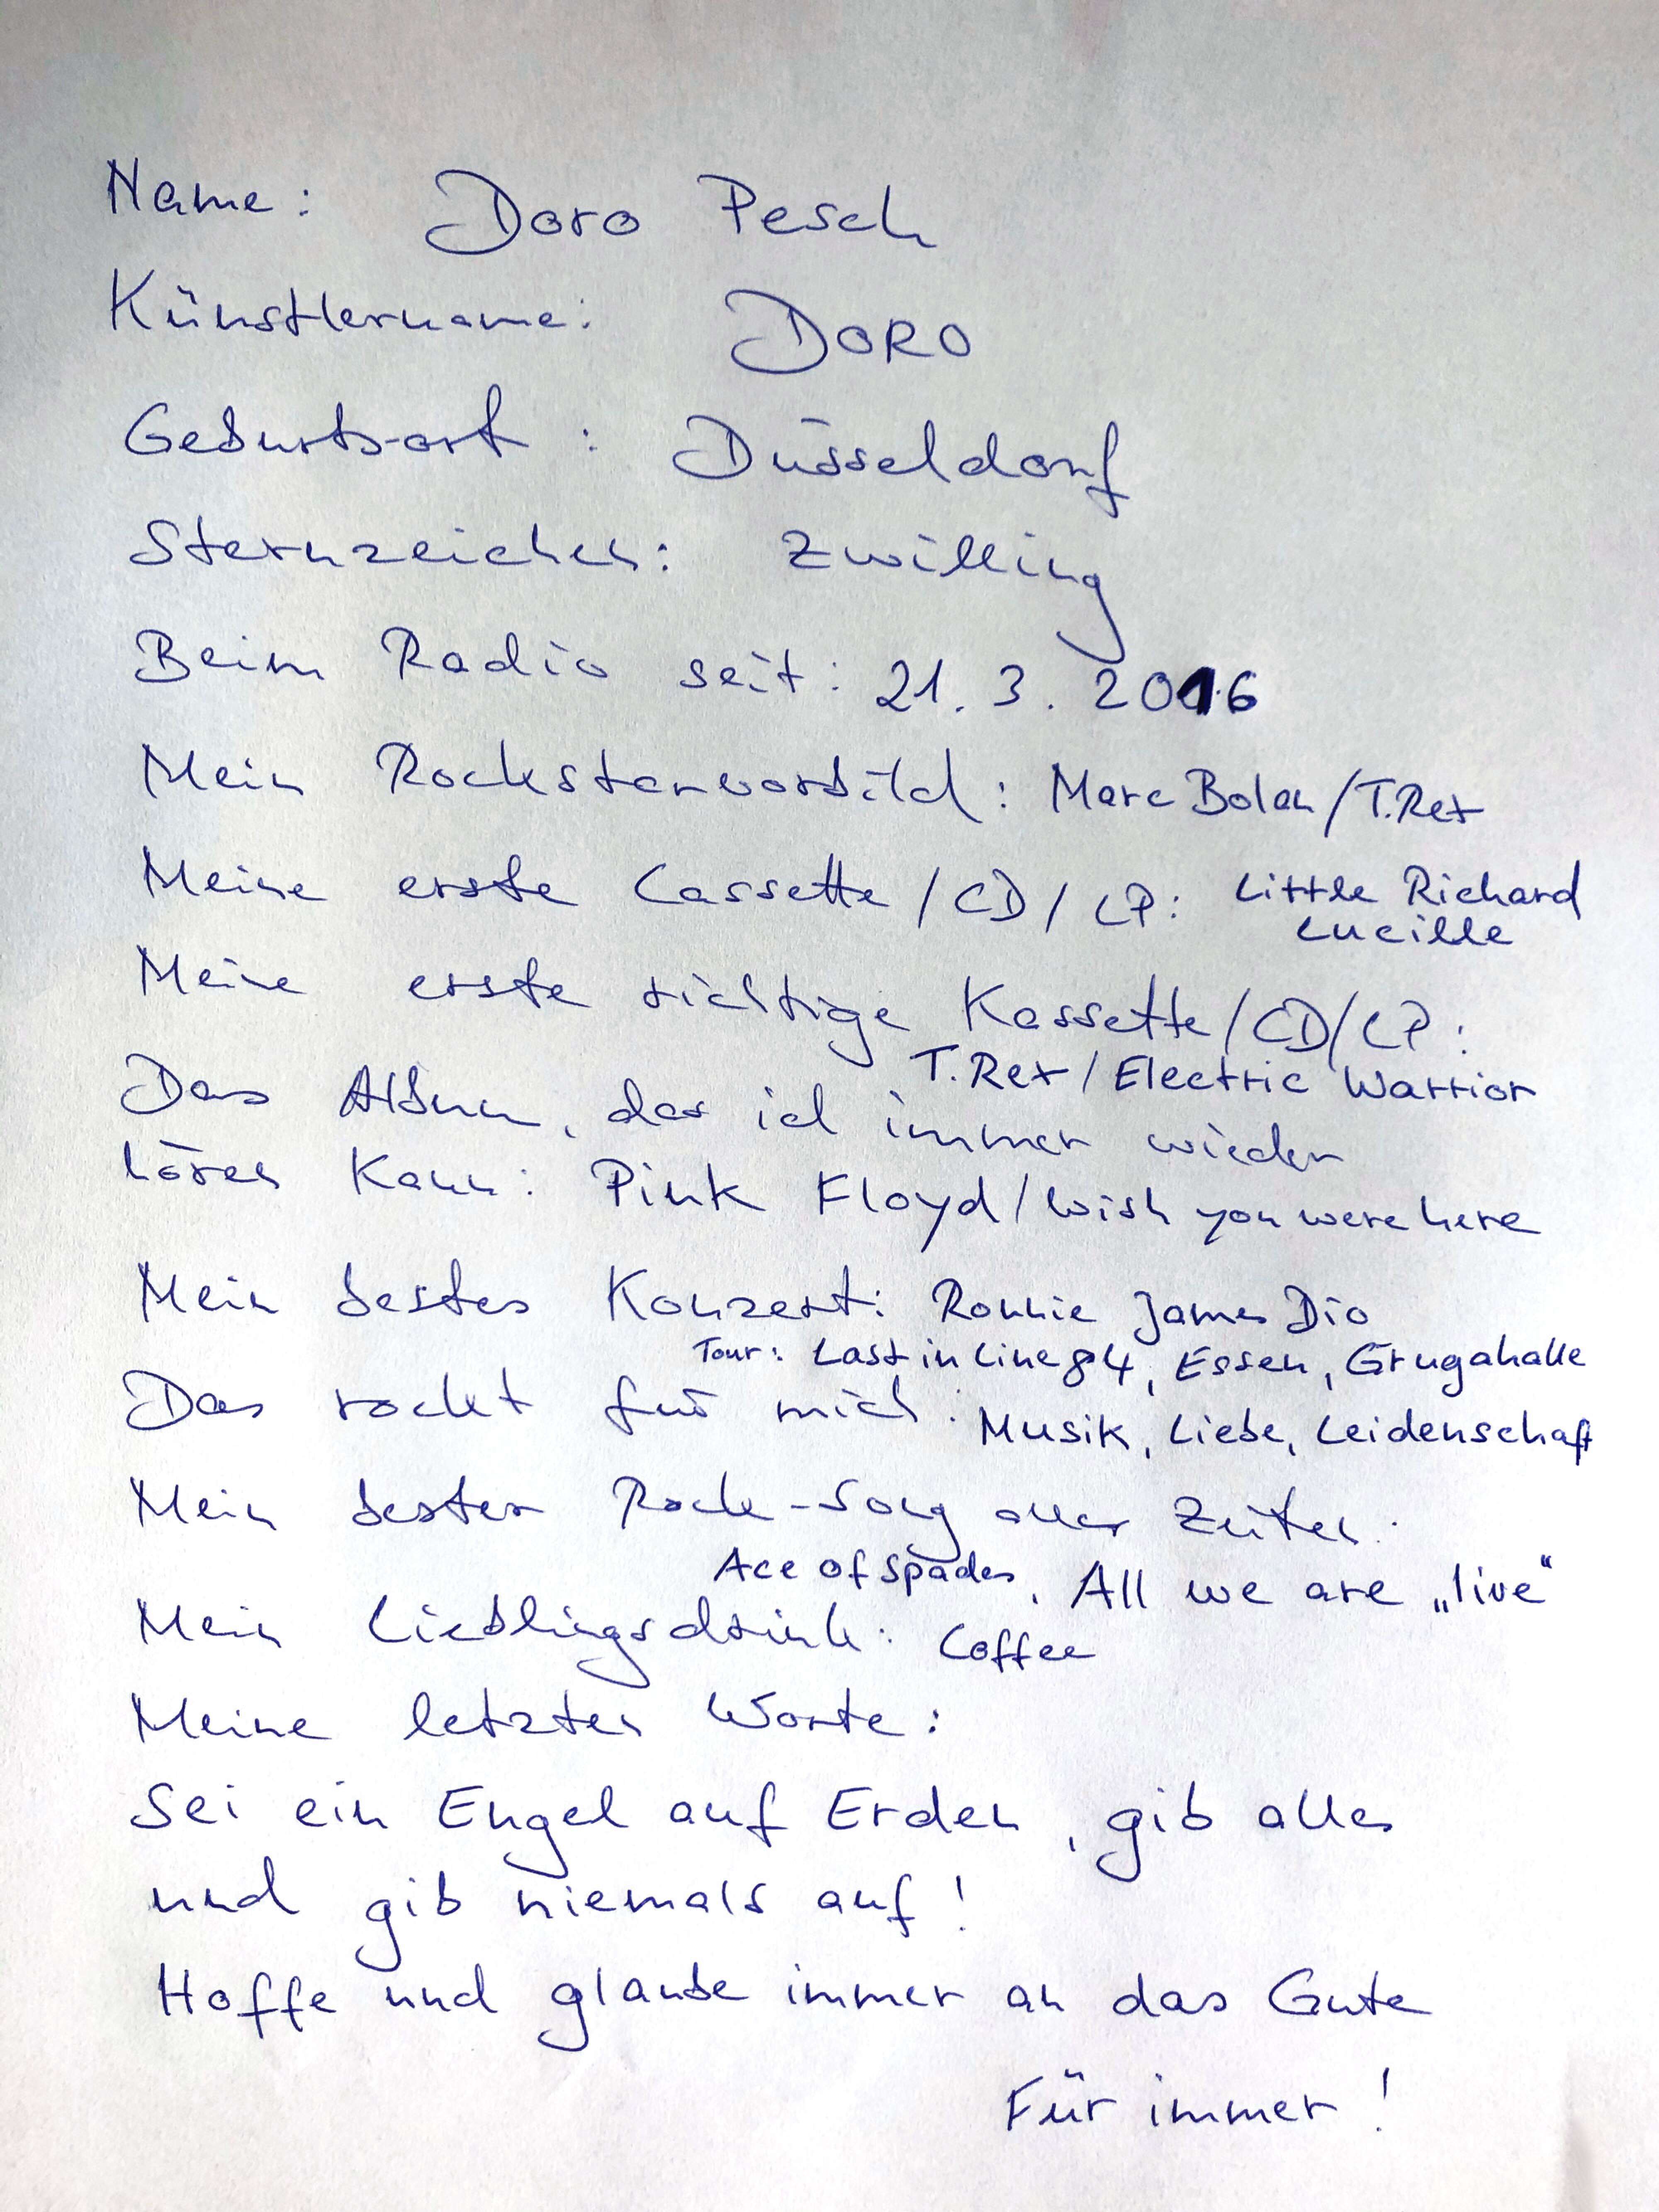 Name: Doro Pesch
Künstlername: DORO
Geburtsort: Düsseldorf
Sternzeichen: Zwilling
Beim Radio seit: 21.3.2016
Mein Rockstarvorbild: Marc Bolan/T.Rex
Meine erste Cassette/CD/LP: Little Richard
Lucille
Meine erste richtige Kassette/CD/LP:
T.Rex/Electric Warrior
Das Album, das ich immer wieder
hören kann: Pink Floyd/Wish you were here
Mein bestes Konzert: Ronnie James Dio
Tour: Last in Line 84, Essen, Grugahalle
Das rockt für mich: Musik, Liebe, Leidenschaft
Mein bester Rock-Song aller Zeiten:
Ace of Spades, All we are „live“
Mein Lieblingsdrink: Coffee
Meine letzten Worte:
Sei ein Engel auf Erden, gib alles
und gib niemals auf!
Hoffe und glaube immer an das Gute
Für immer!